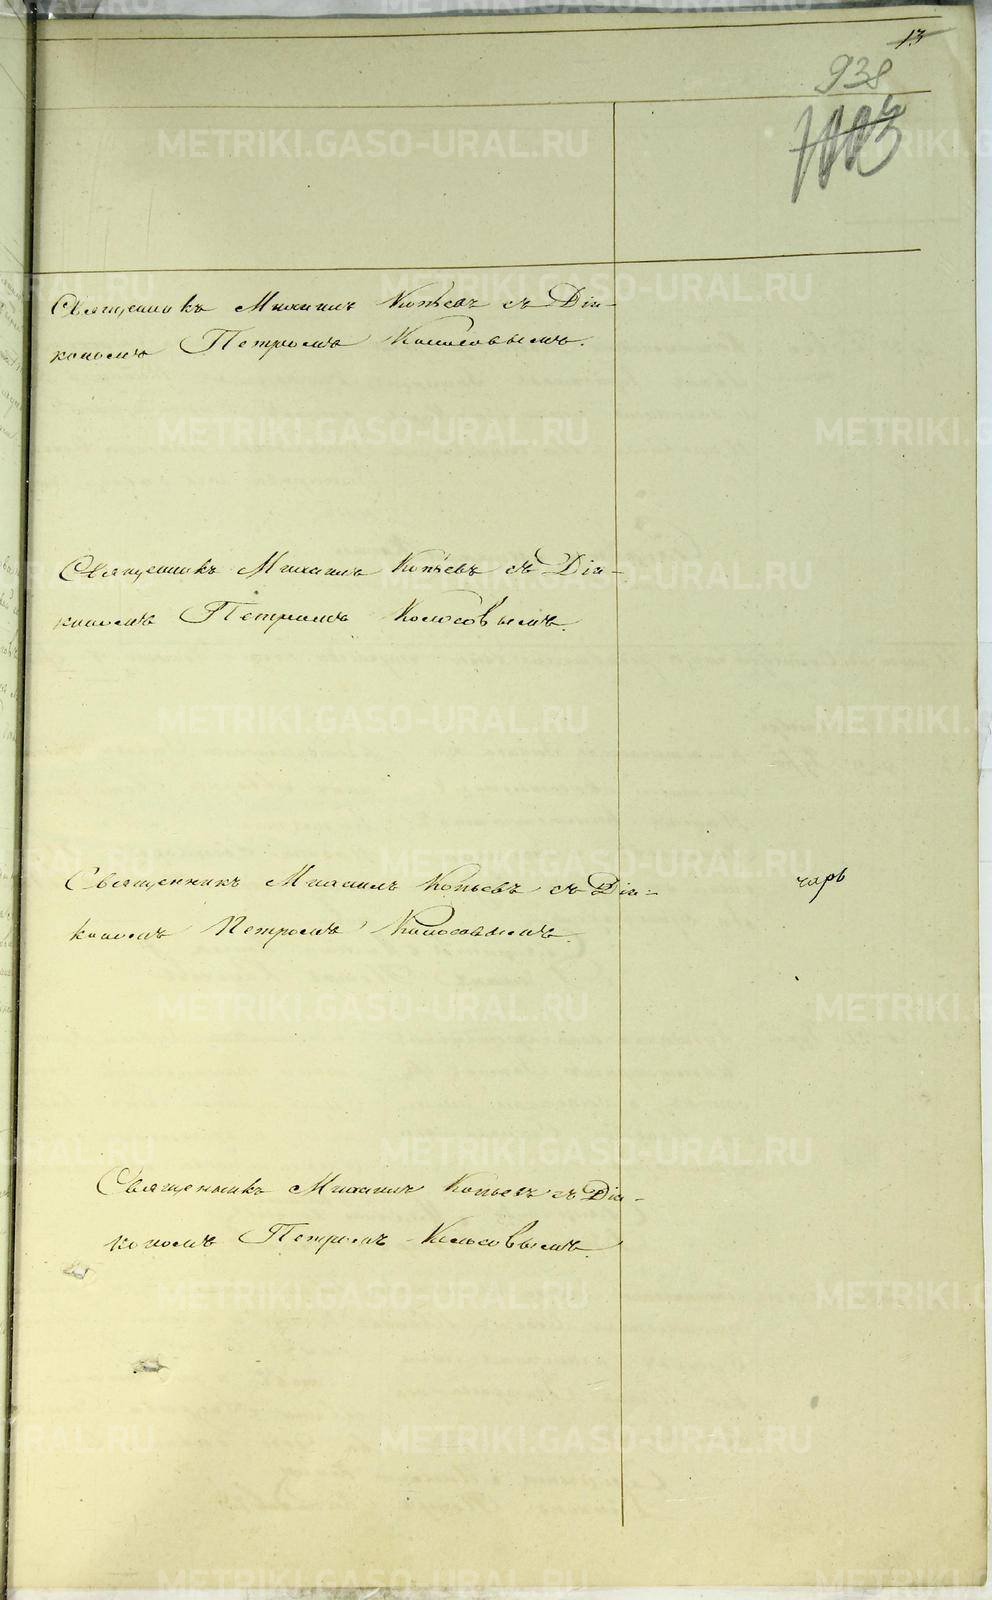 13
938
Священникъ Михаилъ Копьевъ съ Діа-
кономъ Петромъ Колосовымъ.
Священникъ Михаилъ Копьевъ съ Діа-
кономъ Петромъ Колосовымъ.
Священникъ Михаилъ Копьевъ съ Діа-
кономъ Петромъ Колосовымъ.
чарь
Священникъ Михаилъ Копьевъ съ Діа-
кономъ Петромъ Колосовымъ.
METRIKI.GASO-URAL.RU